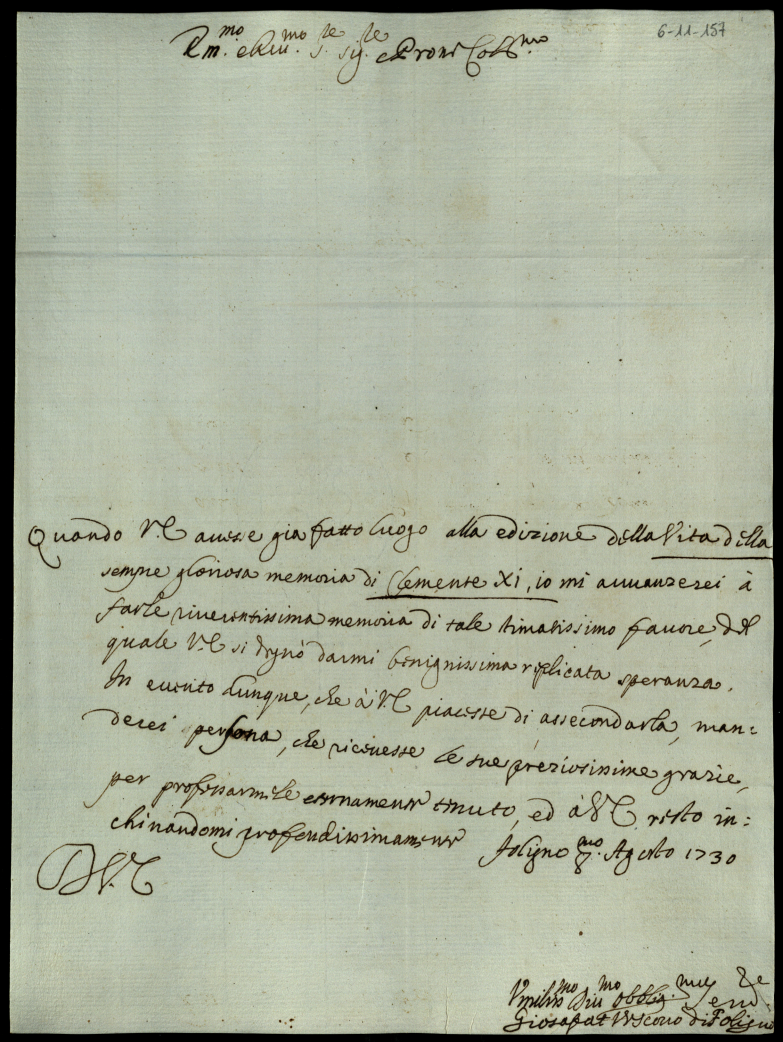 6-11-157
Em.mo e Rev.mo S.re Sig.re e Prone Coll.mo
Quando V.E. avesse gia fatto luogo alla edizione della Vita della
sempre gloriosa memoria di Clemente XI, io mi avvanzerei à
farle riverentissima memoria di tale stimatissimo favore, del
quale V.E. si degnò darmi benignissima replicata speranza.
In evento dunque, che à V.E. piacesse di assecondarla, man=
derei persona, che ricevesse le sue preziosissime grazie,
per professarmile eternamente tenuto, ed à V.E. resto in=
chinandomi profondissimamente Foligno 8 Agosto 1730
D V.E.
Vmiliss.mo Div.mo Obblig.mo Ser.re
Giosafat Vescovo di Foligno